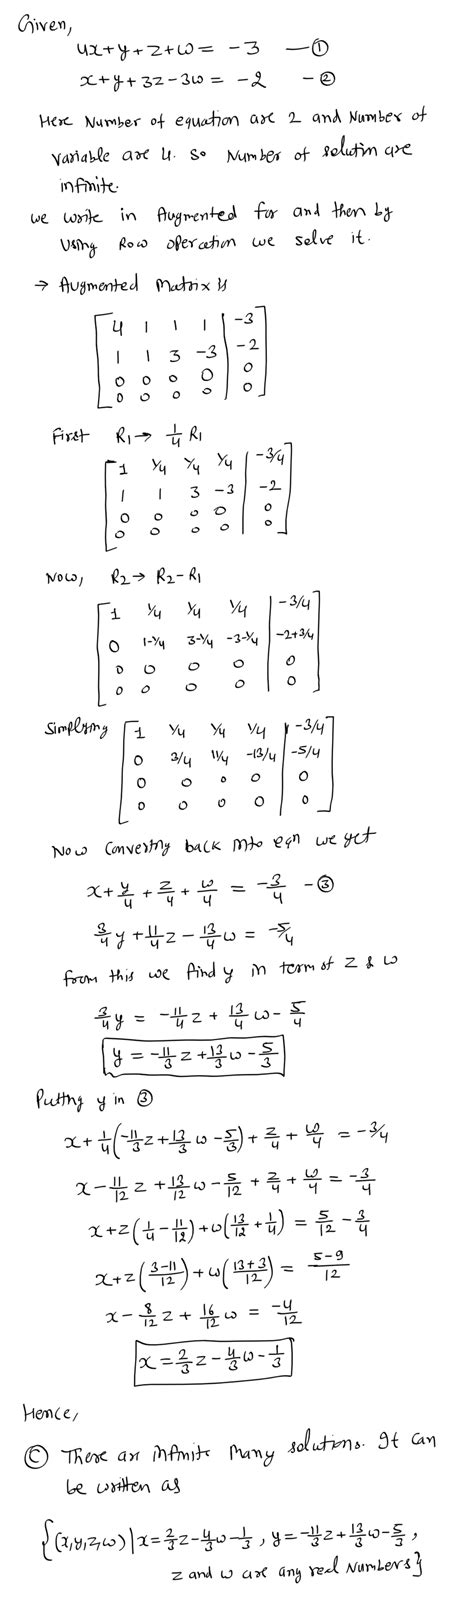 Given,
4x+y+z+w = -3 —①
x+y+3z-3w = -2 -②
Here Number of equation are 2 and Number of
variable are 4. So Number of solutin are
infinite.
we write in Augmented for and then by
Using Row operation we solve it.
→ Augmented Matrix is
4 1 1 1 | -3
1 1 3 -3 | -2
0 0 0 0 | 0
0 0 0 0 | 0
First R1→ 1/4 R1
1 1/4 1/4 1/4 | -3/4
1 1 3 -3 | -2
0 0 0 0 | 0
0 0 0 0 | 0
Now, R2→ R2-R1
1 1/4 1/4 1/4 | -3/4
0 1-1/4 3-1/4 -3-1/4 | -2+3/4
0 0 0 0 | 0
0 0 0 0 | 0
Simplying 1 1/4 1/4 1/4 | -3/4
0 3/4 11/4 -13/4 | -5/4
0 0 0 0 | 0
0 0 0 0 | 0
Now Converting back into eqn we get
x+y/4+z/4+w/4 = -3/4 -③
3/4 y + 11/4 z - 13/4 w = -5/4
from this we find y in term of z & w
3/4 y = -11/4 z + 13/4 w - 5/4
y = -11/3 z + 13/3 w - 5/3
Putting y in ③
x+1/4(-11/3 z+13/3 w-5/3)+z/4+w/4 = -3/4
x-11/12 z+13/12 w-5/12+z/4+w/4 = -3/4
x+z(1/4-11/12)+w(13/12+1/4) = 5/12-3/4
x+z(3-11/12)+w(13+3/12) = 5-9/12
x-8/12 z+16/12 w = -4/12
x = 2/3 z-4/3 w-1/3
Hence,
Ⓒ There are infinite many solutions. It can
be written as
{(x,y,z,w)|x=2/3 z-4/3 w-1/3, y=-11/3 z+13/3 w-5/3,
z and w are any real Numbers}